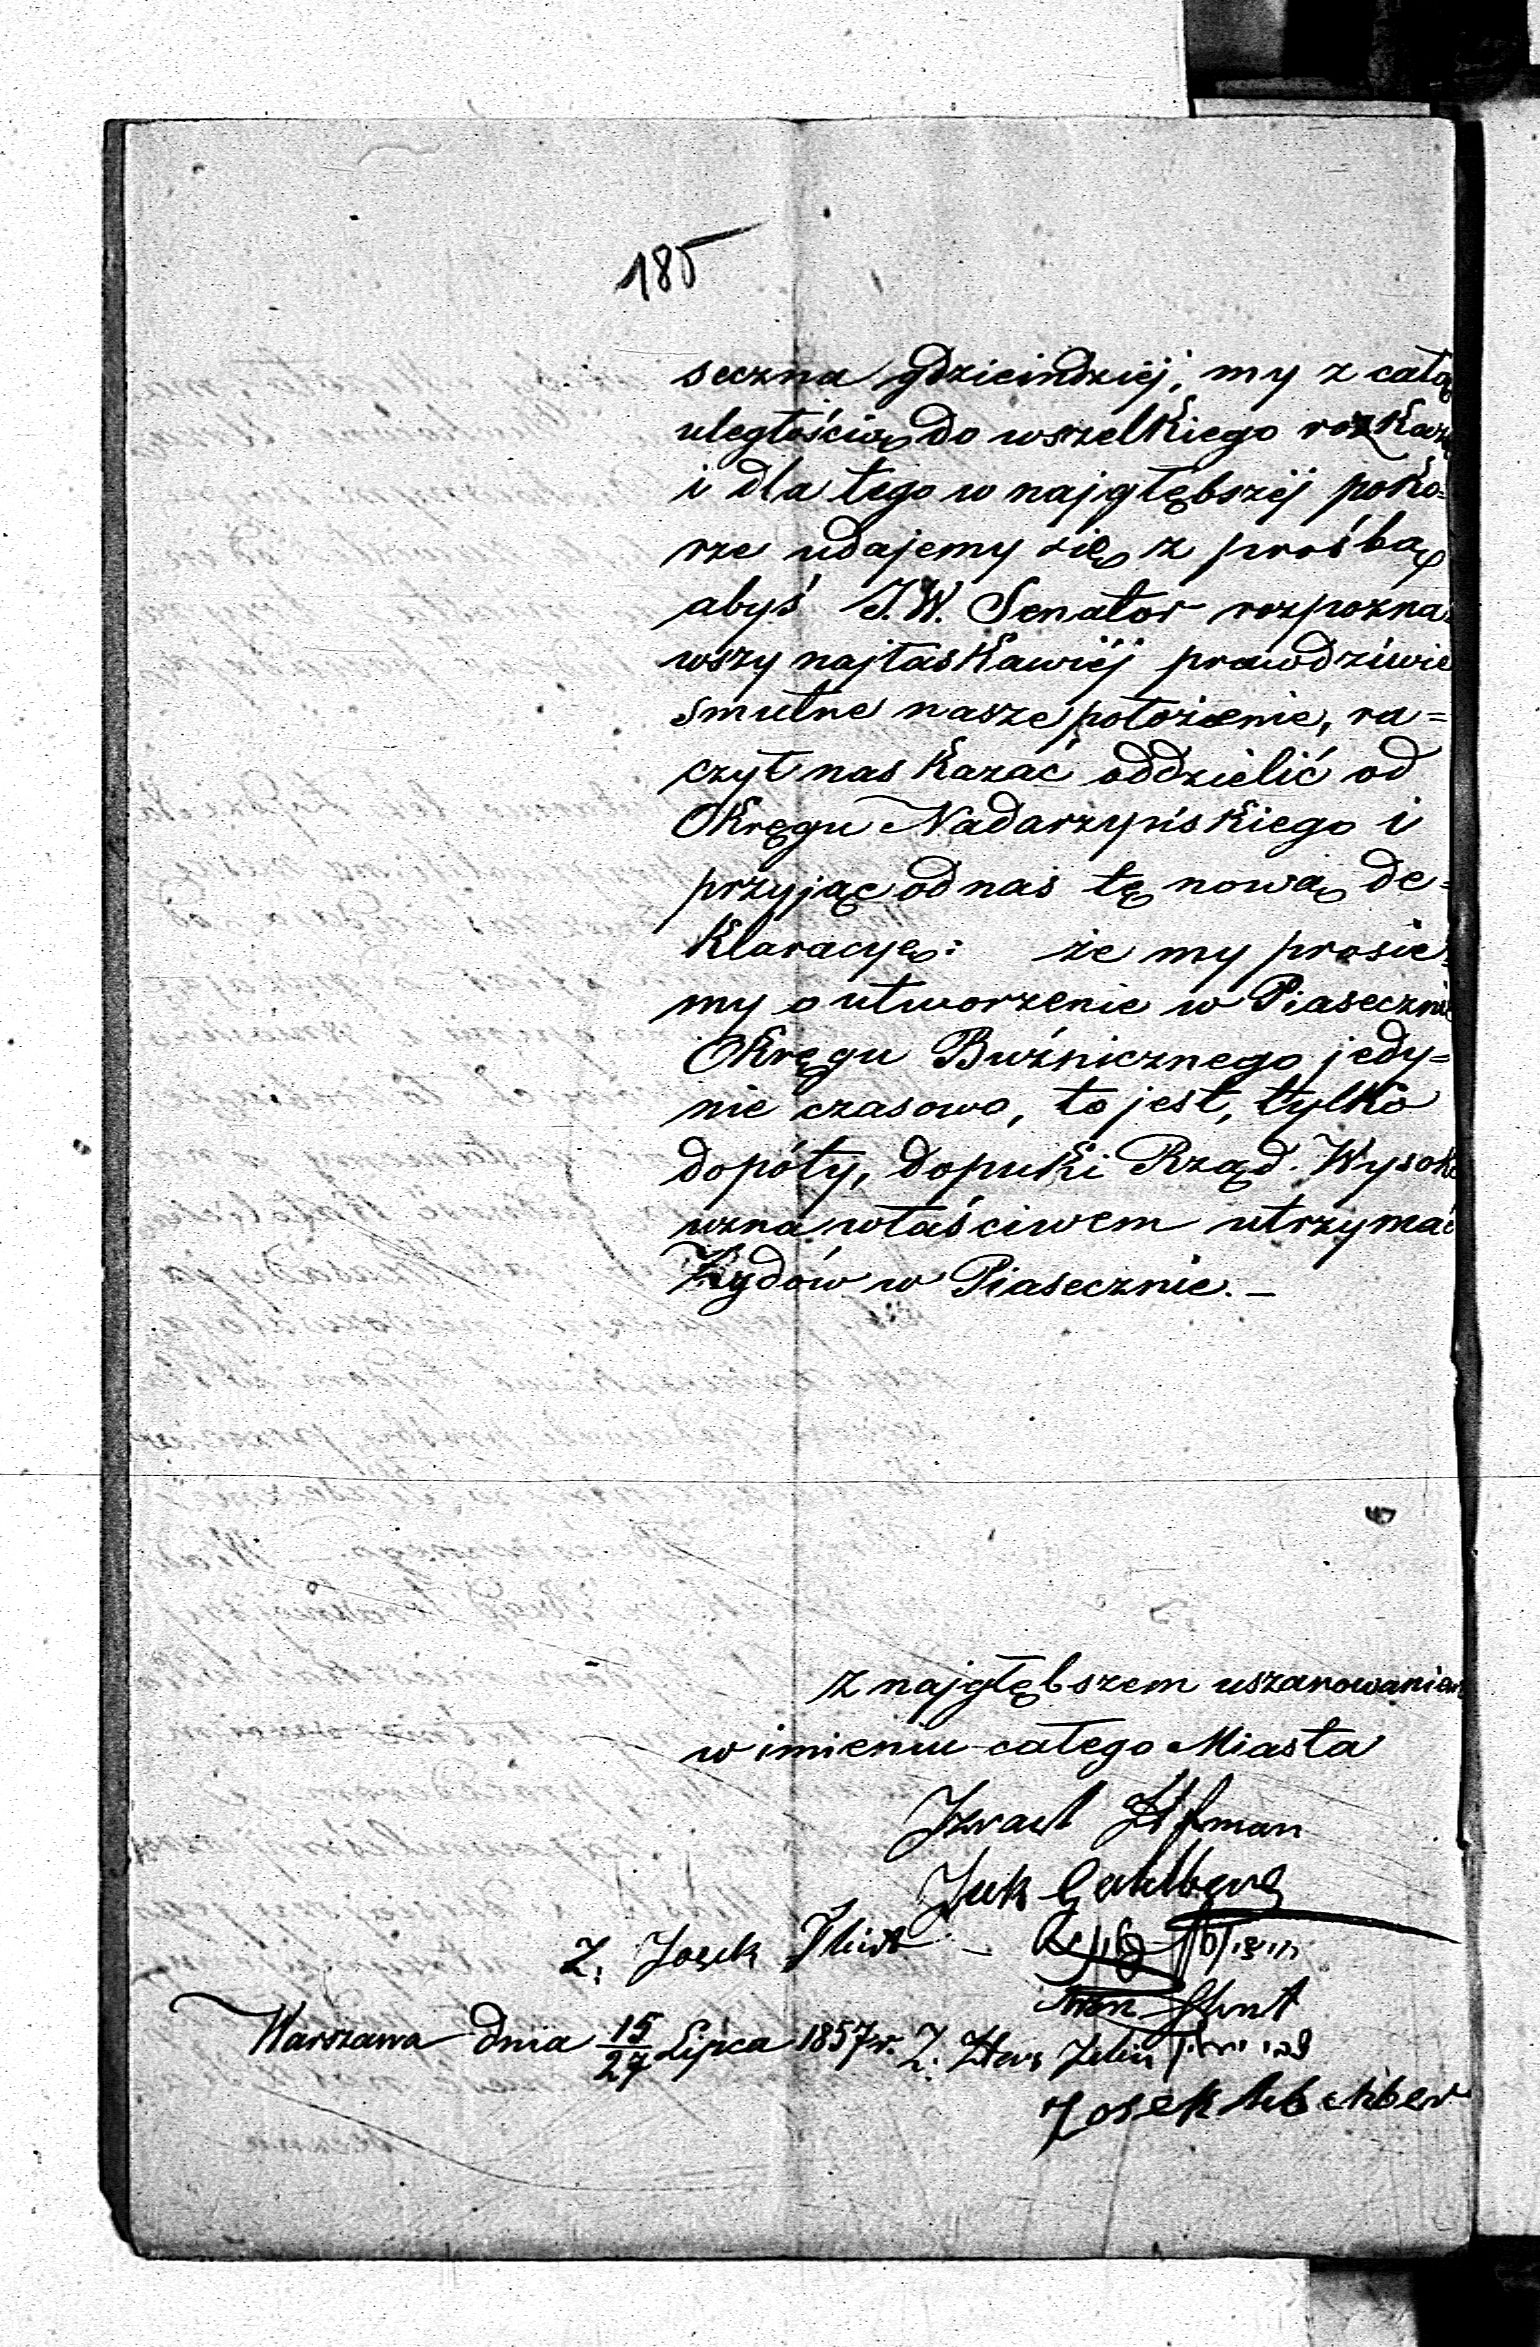 185
seczna gdzieindziéj, my z całą
uległością do wszelkiego rozkazu
i dla tego w najgłębszéj poko=
rze udajemy się z prośbą
abyś J.W. Senator rozpozna=
wszy najłaskawiéj prawdziwie
smutne nasze położenie, ra=
czył nas kazać oddzielić od
Okręgu Nadarzyńskiego i
przyjąć od nas tę nową de=
klaracyę: że my prosie=
my o utworzenie w Piasecznie
Okręgu Buźnicznego jedy=
nie czasowo, to jest, tylko
dopóty, dopuki Rząd Wysoki
uzna właściwem utrzymać
Żydów w Piasecznie. –
z najgłębszem uszanowaniem
w imieniu całego Miasta
Izrael
Z. Josek
Warszawa dnia 15/27 Lipca 1857 r.
Josek